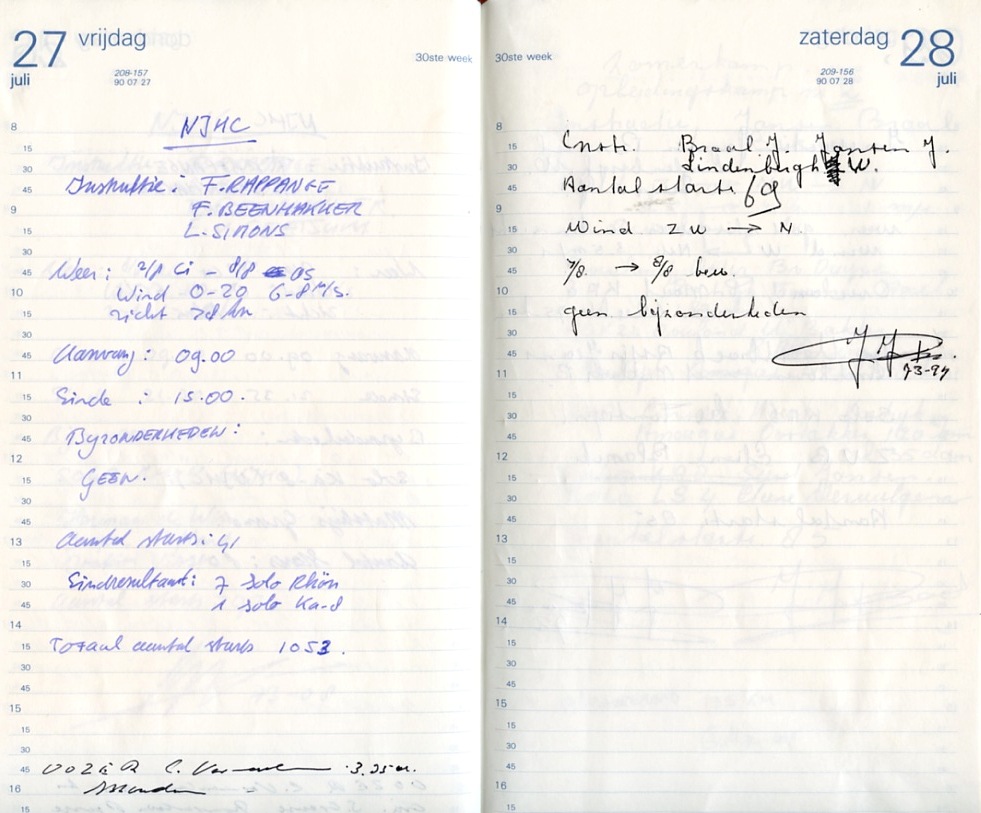 27 vrijdag
juli
208-157
90 07 27
30ste week
NJHC
Instruktie. F. RAPPANGE
F. BEENHAKKER
L. SIMONS
Weer: 2/8 Ci - 8/8 as
Wind 0-20 6-8 m/s.
zicht >8 km
Aanvang: 09.00
Einde : 15.00.
ByZONDERHEDEN:
GEEN.
Aantal starts: 41
Eindresultaat: 7 solo Rhön
1 solo Ka-8
Totaal aantal starts 1053.
8
15
30
45
9
15
30
45
10
15
30
45
11
15
30
45
12
15
30
45
13
15
30
45
14
15
30
45
15
15
30
45
16
15
zaterdag 28
juli
209-156
90 07 28
30ste week
Instr. Braal J. Jansen J.
Lindenbergh W.
Aantal starts 69
Wind ZW → N
7/8 → 8/8 bew.
geen bijzonderheden
8
15
30
45
9
15
30
45
10
15
30
45
11
15
30
45
12
15
30
45
13
15
30
45
14
15
30
45
15
15
30
45
16
15